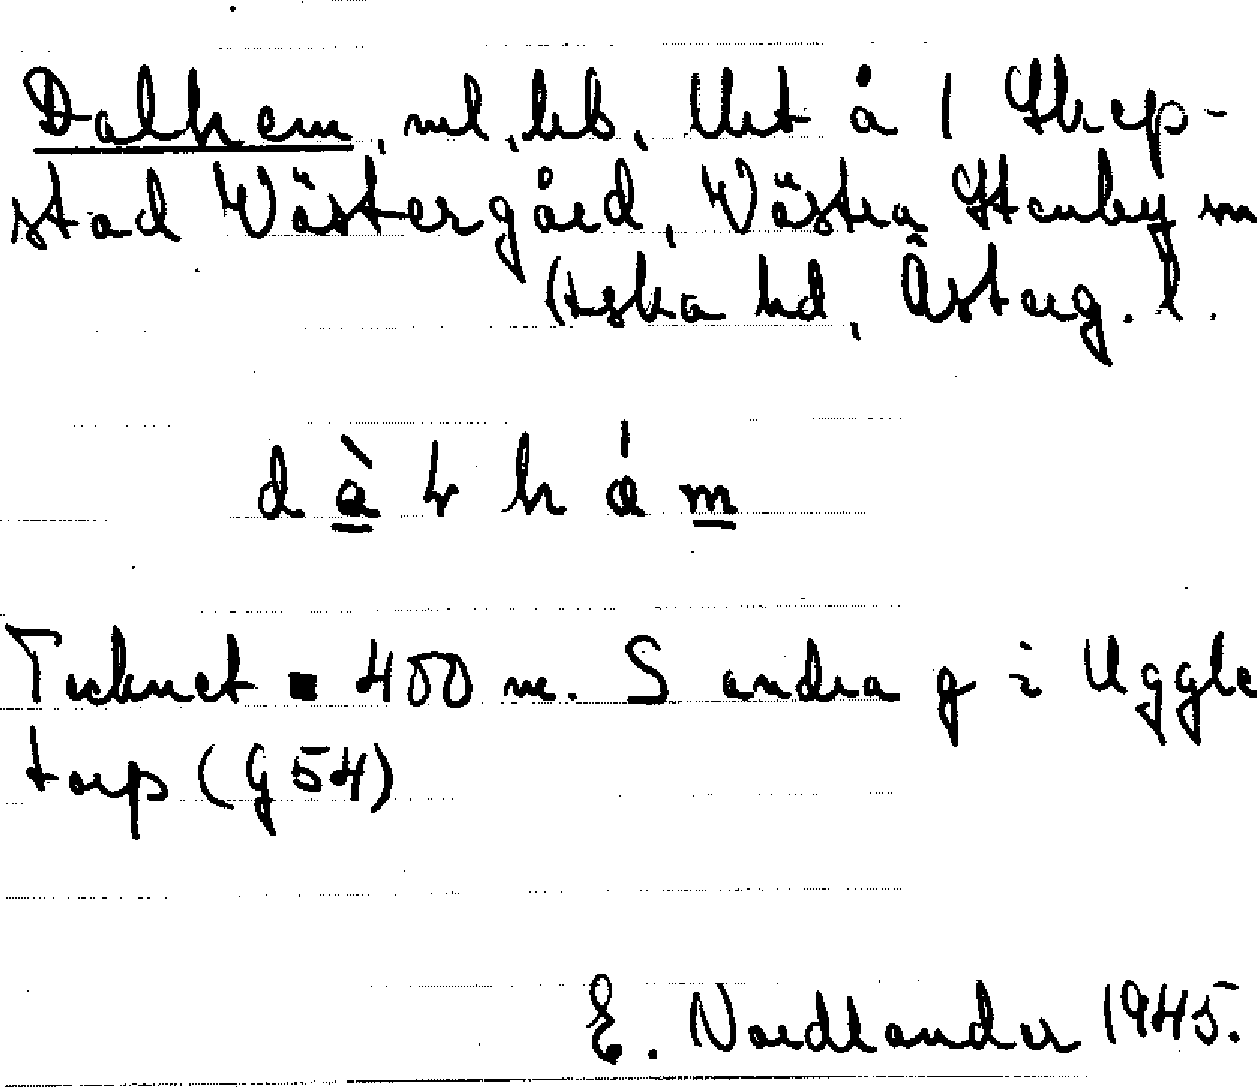 Dalhem, nl, lb. Utet å 1 Skep-
stad Västergård, Västra Stenby sn
(Aska hd, Österg. l.
d à ł h á m
Tecknet ■ 400 m. S andra g i Uggle
torp (G 54)
E. Nordlander 1945.